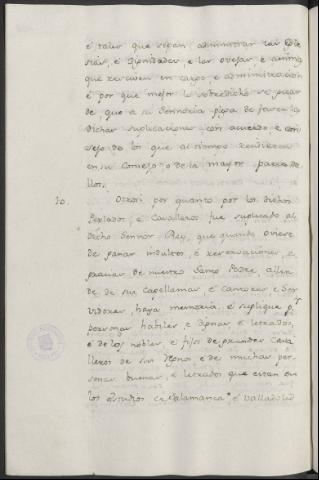 é tales que sepan administrar las Ygle
sias, é dignidades, é las ovejas, é animas
que reciben en cargo, é administracion
é por que mejor lo sobredicho se pueda
de, que a su Sennoria plega de facer las
dichas suplicaciones con acuerdo é con
sejo de los que al tiempo residieren
en su Consejo, o de la mayor parte de
llos.
10. Otrosi por quanto por los dichos
Perlados, é Cavalleros fue suplicado al
dicho Sennor Rey, que quando oviere
de ganar indultos, é reservaciones, é
gracias de nuestro Santo Padre, allen
de de sus capellanes, é cantores é Ser
vidores, haya memoria, é suplique por
personas habiles, é dignas, é letrados,
é de los nobles, é fijos de grandes Cava
lleros de sus Reynos é de muchas per
sonas buenas, é letrados que estan en
los estudios de Salamanca, é Valladolid